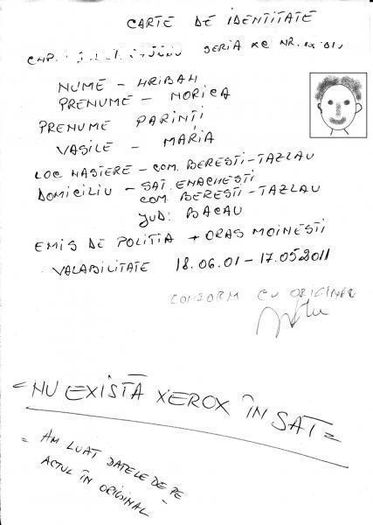 CARTE DE IDENTITATE
CNP. SERIA XC NR.
NUME - HRIBAN
PRENUME - MORICA
PRENUME PARINTI
VASILE - MARIA
LOC NASTERE - COM. BERESTI-TAZLAU
DOMICILIU - SAT. ENACHESTI
COM BERESTI-TAZLAU
JUD: BACAU
EMIS DE POLITIA + ORAS MOINESTI
VALABILITATE 18.06.01 - 17.052011
CONFORM CU ORIGINAL
= NU EXISTĂ XEROX ÎN SAT =
= AM LUAT DATELE DE PE
ACTUL ÎN ORIGINAL =